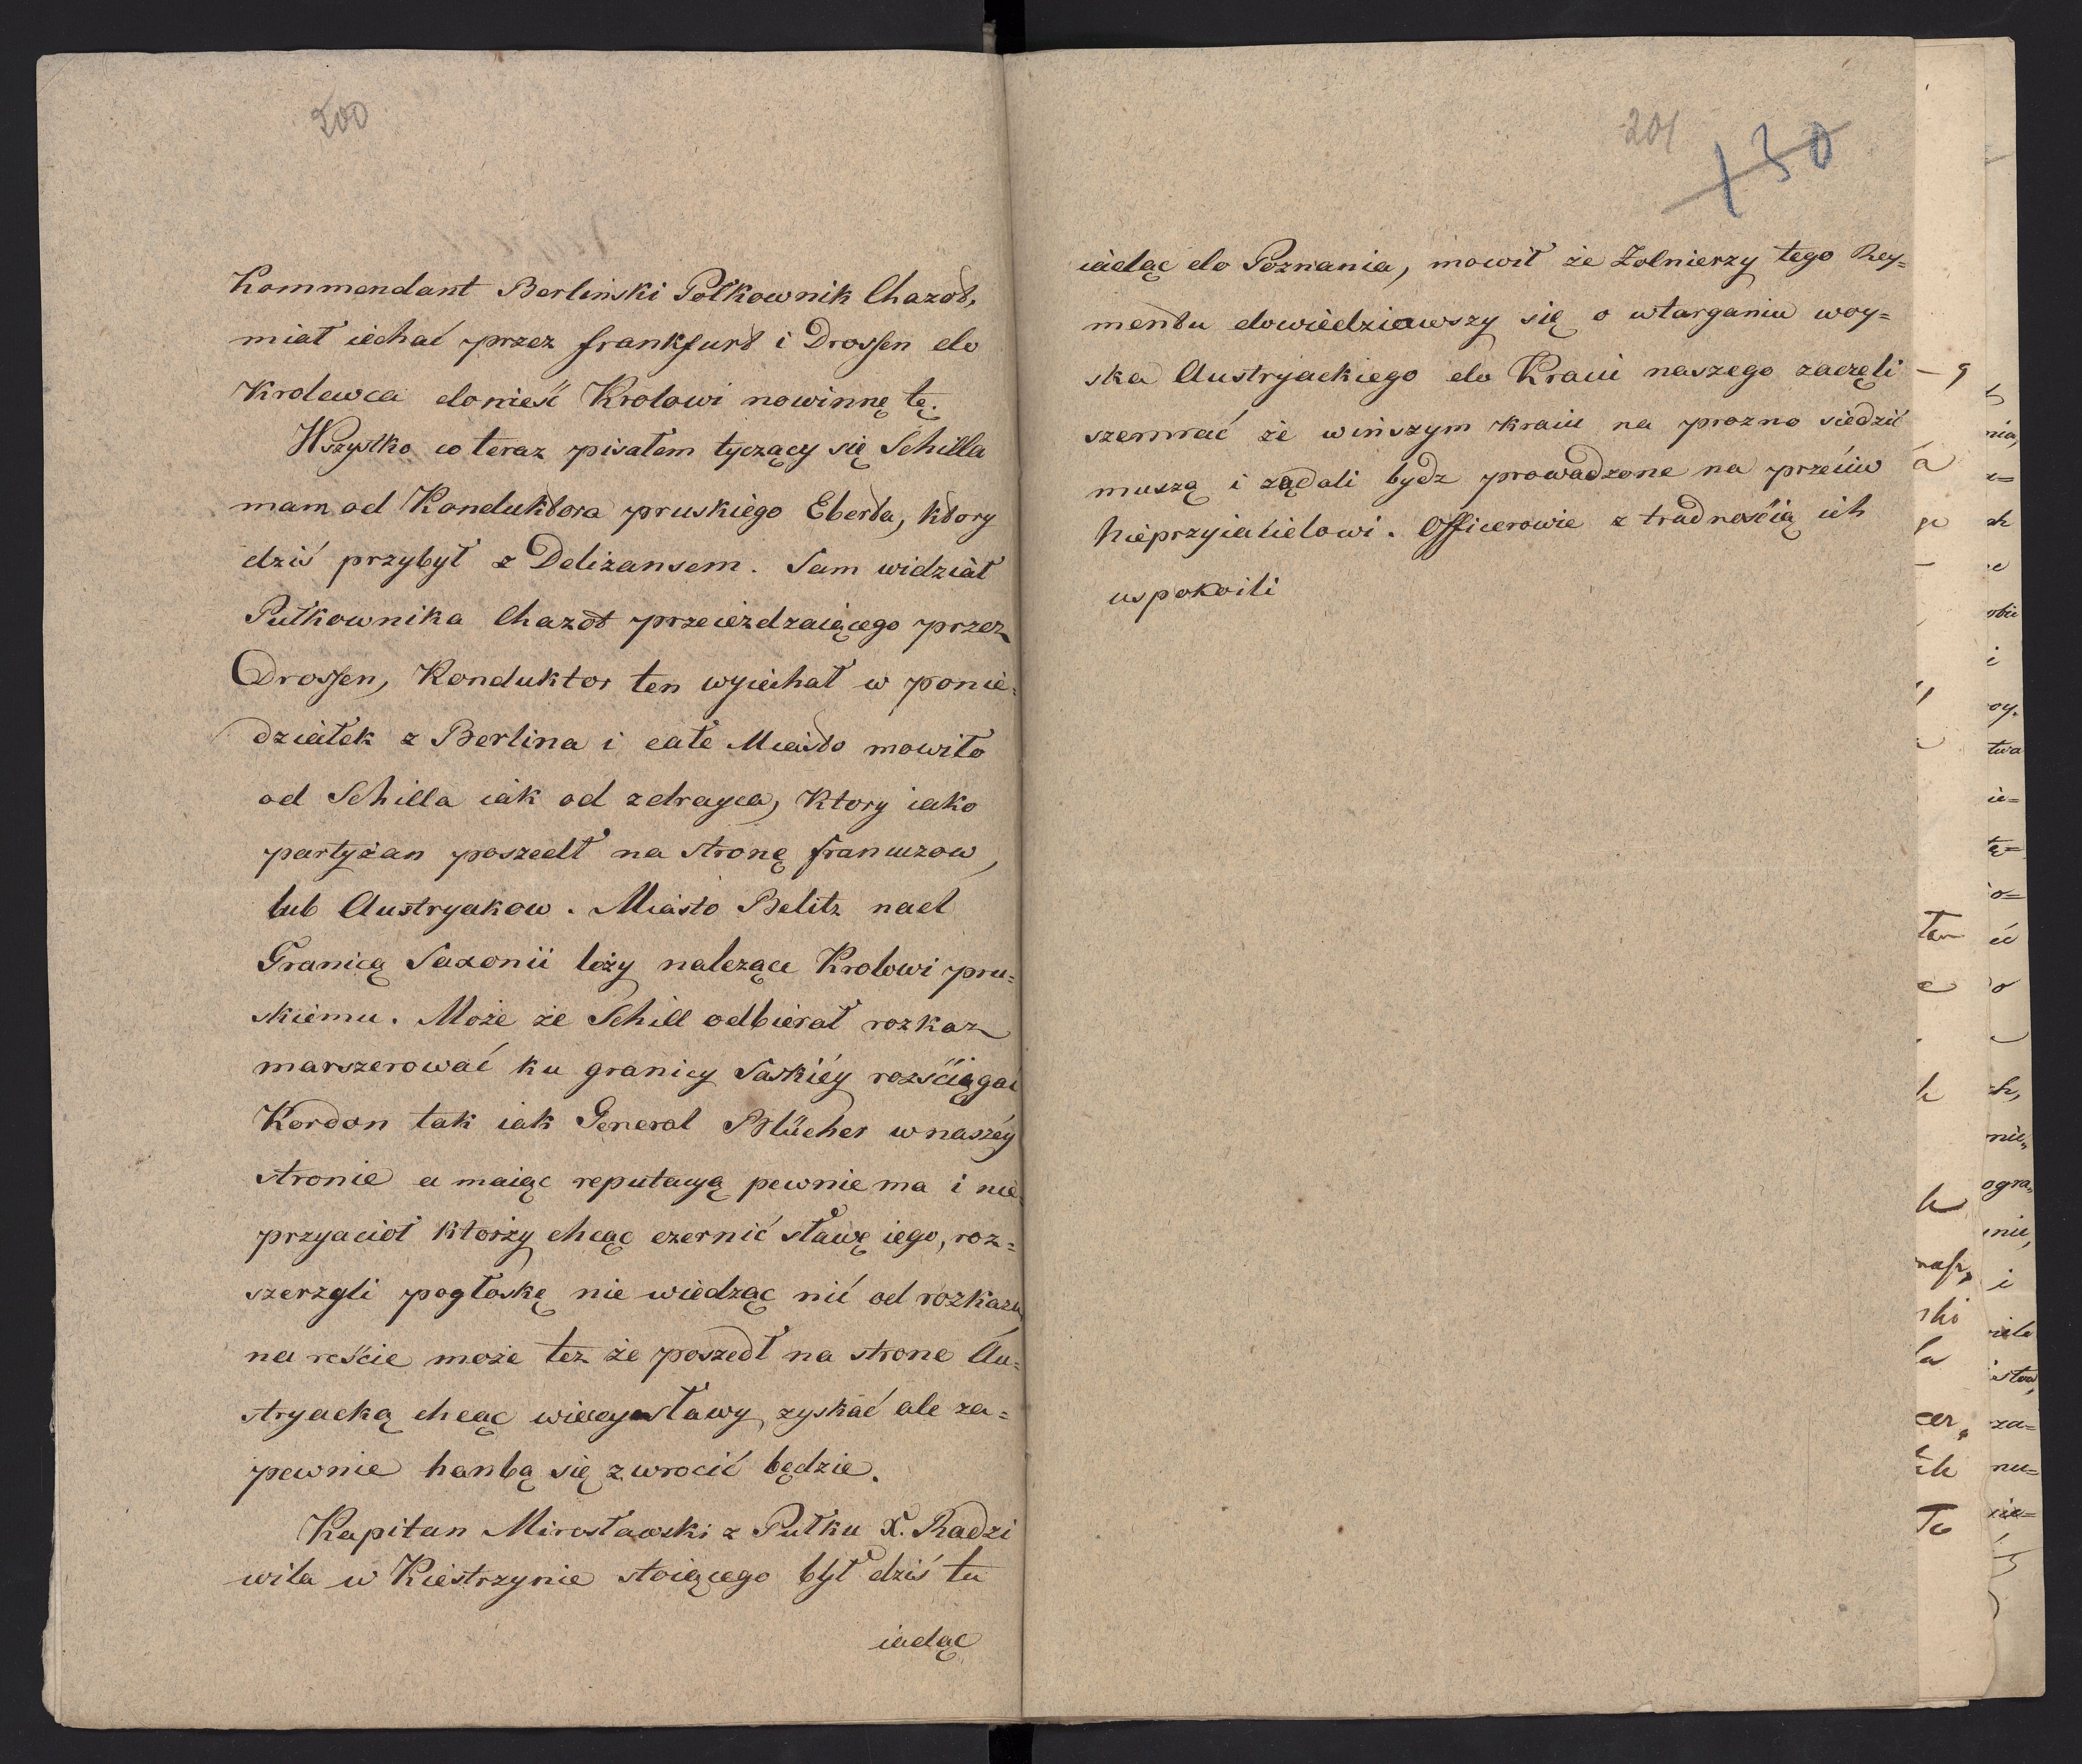 200
Kommendant Berliński Połkownik Chazot,
miał iechać przez frankfurt i Drossen do
Krolewca donieść Krolowi nowinnę tę.
Wszystko co teraz pisałem tyczący się Schilla
mam od Konduktora pruskiego Eberta, ktory
dziś przybył z Deliżansem. Sam widział
Pułkownika Chazot przeieżdzaiącego przez
Drossen, Konduktor ten wyiechał w ponie=
działek z Berlina i całe Miasto mowiło
od Schilla iak od zdrayca, Ktory iako
partyżan poszedł na stronę francuzow,
lub Austryakow. Miasto Belitz nad
Granicą Saxonii leży nalezące Krolowi pru=
skiemu. Może że Schill odbierał rozkaz
marszerować ku granicy Saskiéy rozściągać
Kordon tak iak General Blücher w naszéy
stronie a maiąc reputacyą pewnie ma i nie=
przyacioł ktorży chcąc czernić sławę iego, roz=
szerzyli pogłoskę nie wiedząc nić od rozkazu,
na reście może tez że poszedł na strone Au=
stryacką chcąc wiecey sławy zyskać ale za=
pewnie hanbą się zwrocić będzie.
Kapitan Mirosławski z Pułku X. Radzi
wiła w Kiestrzynie stoiącego był dziś tu
iadąc
201
130
iadąc do Poznania, mowił że Zolnierzy tego Rey=
mentu dowiedziawszy się o wtarganiu woy=
ska Austryackiego do Kraiu naszego zaczęli
szemrać że winszym kraiu na prozno siedzić
muszą i ządali bydz prowadzone na przeciw
Nieprzyiacielowi. Officerowie z tradnościią ich
uspokoili